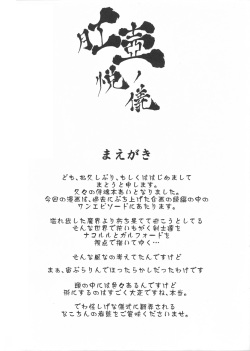 肛壺ノ
悦儀
まえがき
ども、お久しぶり、もしくははじめまして
まとうと申します。
久々の侍魂本あいとなりました。
今回の漫画は、過去にぶち上げた企画の続編の中の
サンエピソードにあたります。
溢れ出した魔界より立ち昇てて逝こうとしてる
そんな世界で抗いもがく剣士達を
ナコルルとガルフォードを
視点で描いてゆく…
そんな風なの考えてたんですけど
まぁ、宙ぶらりんでほったらかしだったわけです
頭の中には色々あるんですけど
形にするのはすごく大変ですね、本当。
では怪しげな儀式に翻弄される
なこちんの痴態をご賞味くださいませ。